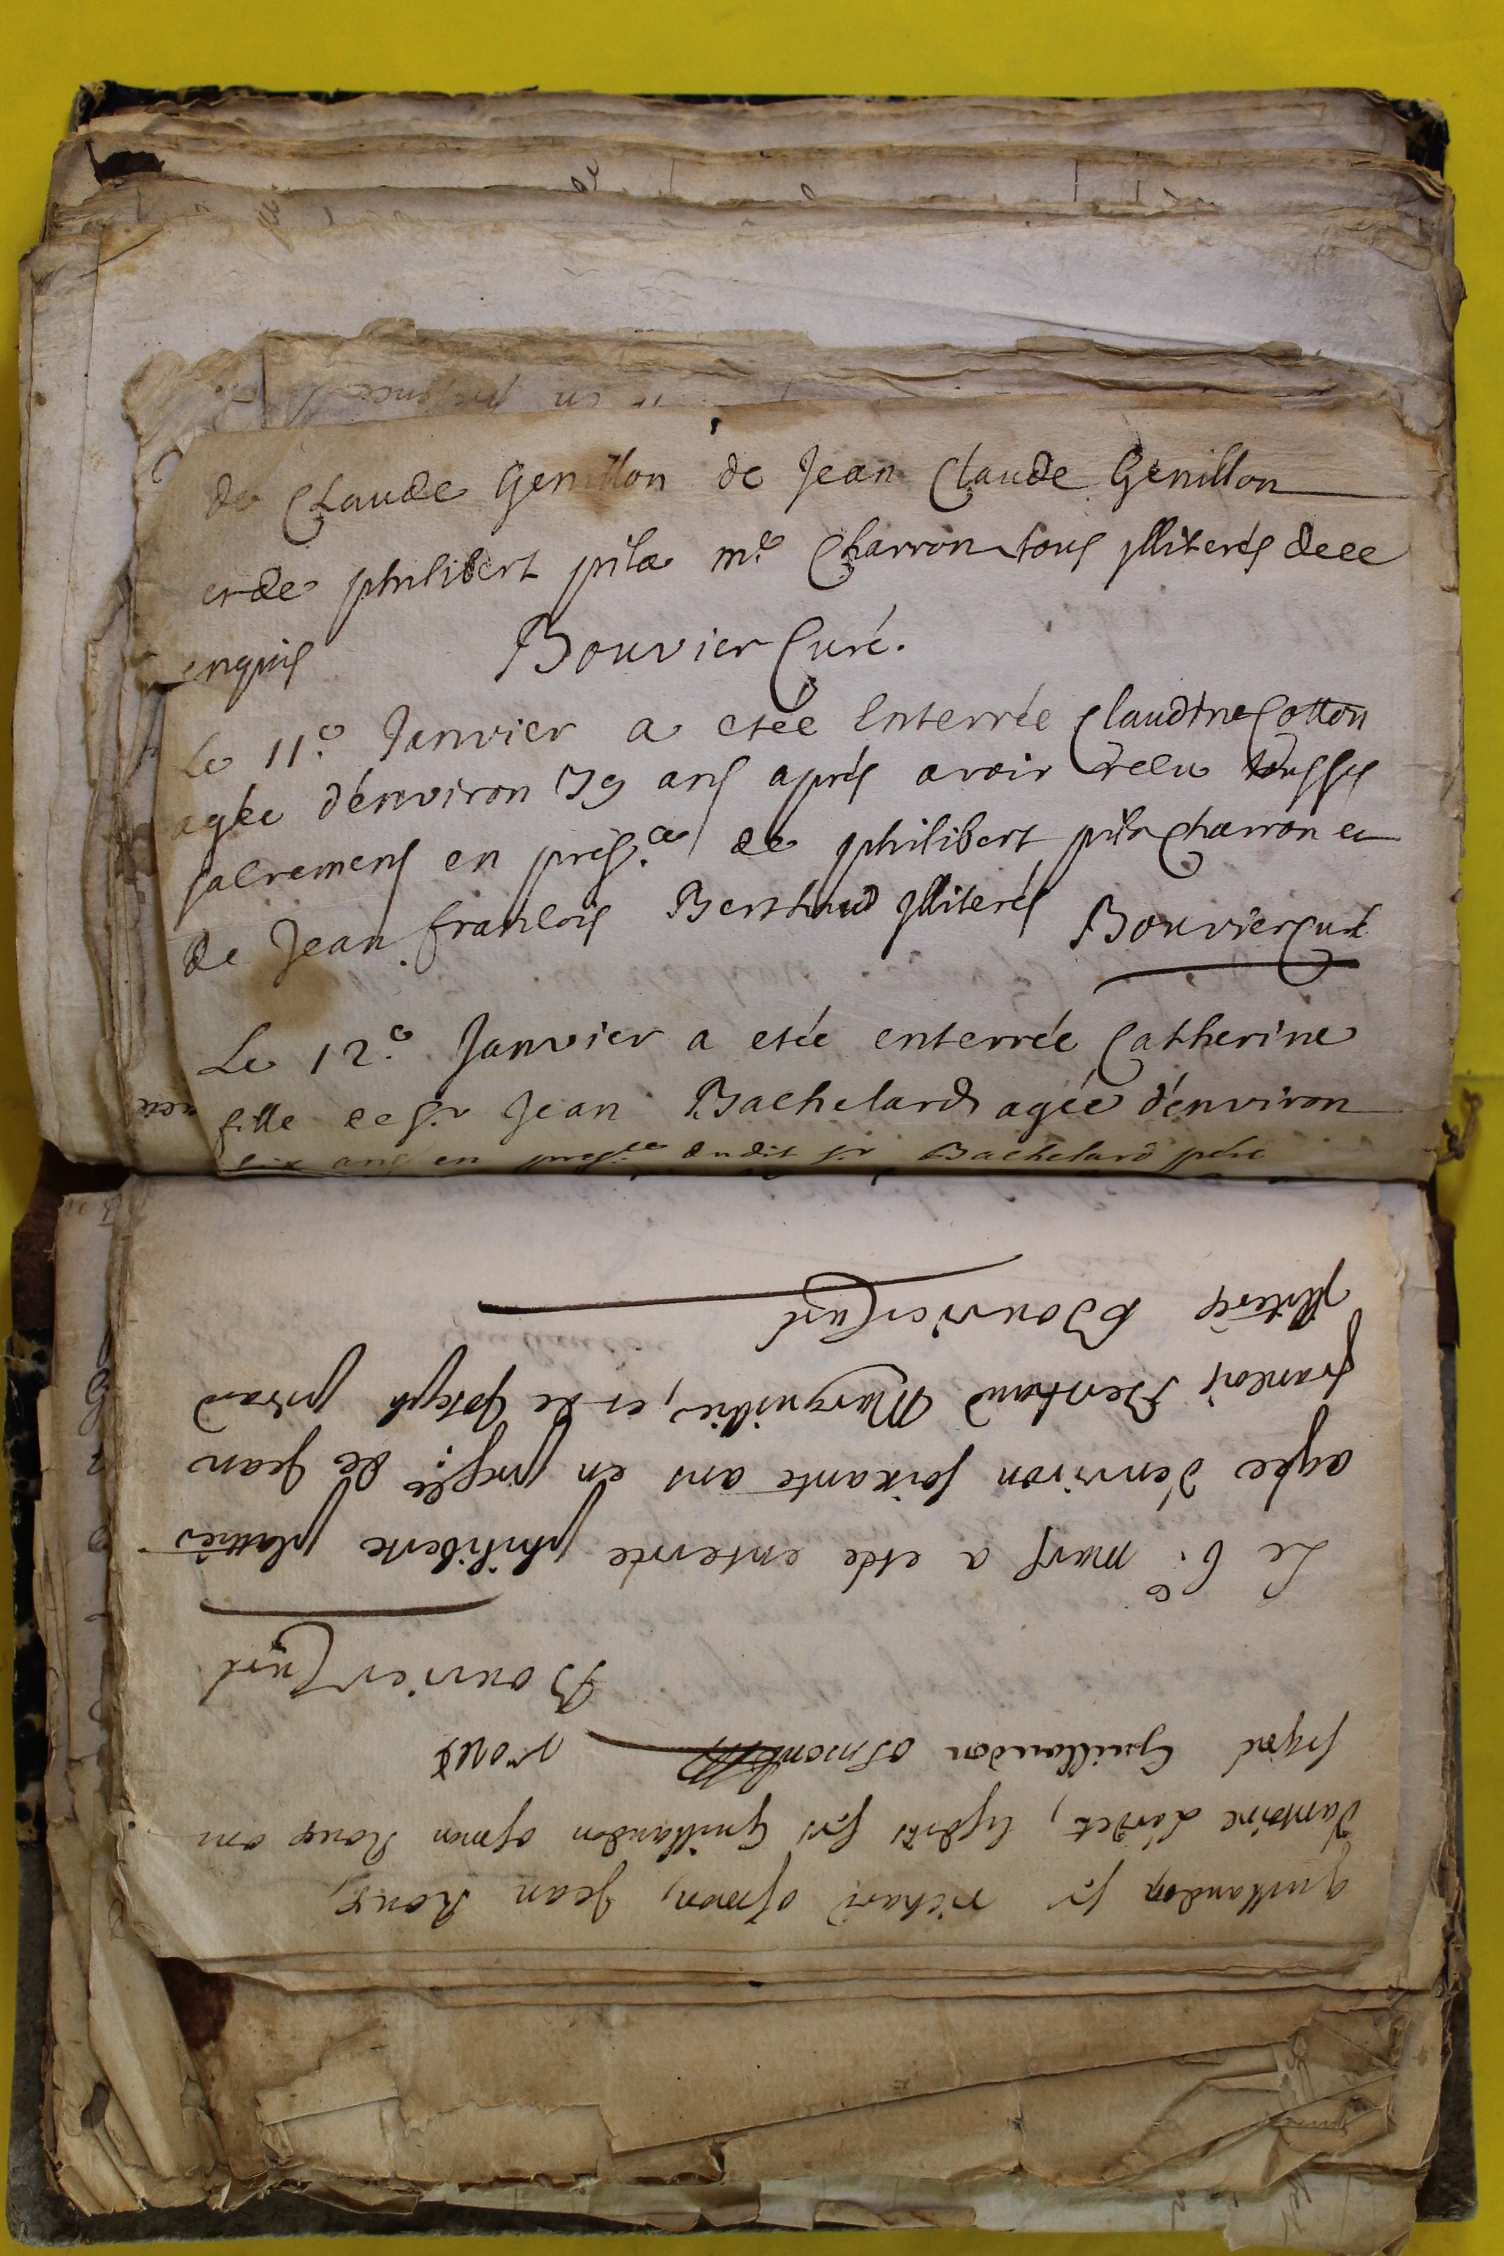 de Claude Genillon de Jean Claude Genillon
et de philibert pila md. Charron tous jlliterés de ce
enquis Bouvier Curé.
Le 11e. Janvier a etée Enterrée Claudine Cotton
agée d'énviron 39 ans aprés avoir recu touts ses
sacremens en presce. de philibert pila charron et
de Jean francois Berthaud jlliterés Bouvier Curé
Le 12e. Janvier a etée enterrée Catherine
fille de sr. Jean Bachelard agée d'énviron
six ans en presce. dudit sr. Bachelard pere
guillaudon sr richard osmon, Jean Roux,
d'antoine Lardet, lesdits srs Guillaudon osmon Roux ont
signé Guillaudon osmont roux
Bouvier Curé
Le 6e. mars a etée enterrée philiberte plattier
agée d'environ soixante ans en presce. de Jean
francois Berthaud Marguillier, et de Joseph pitrad
jlliterés Bouvier Curé